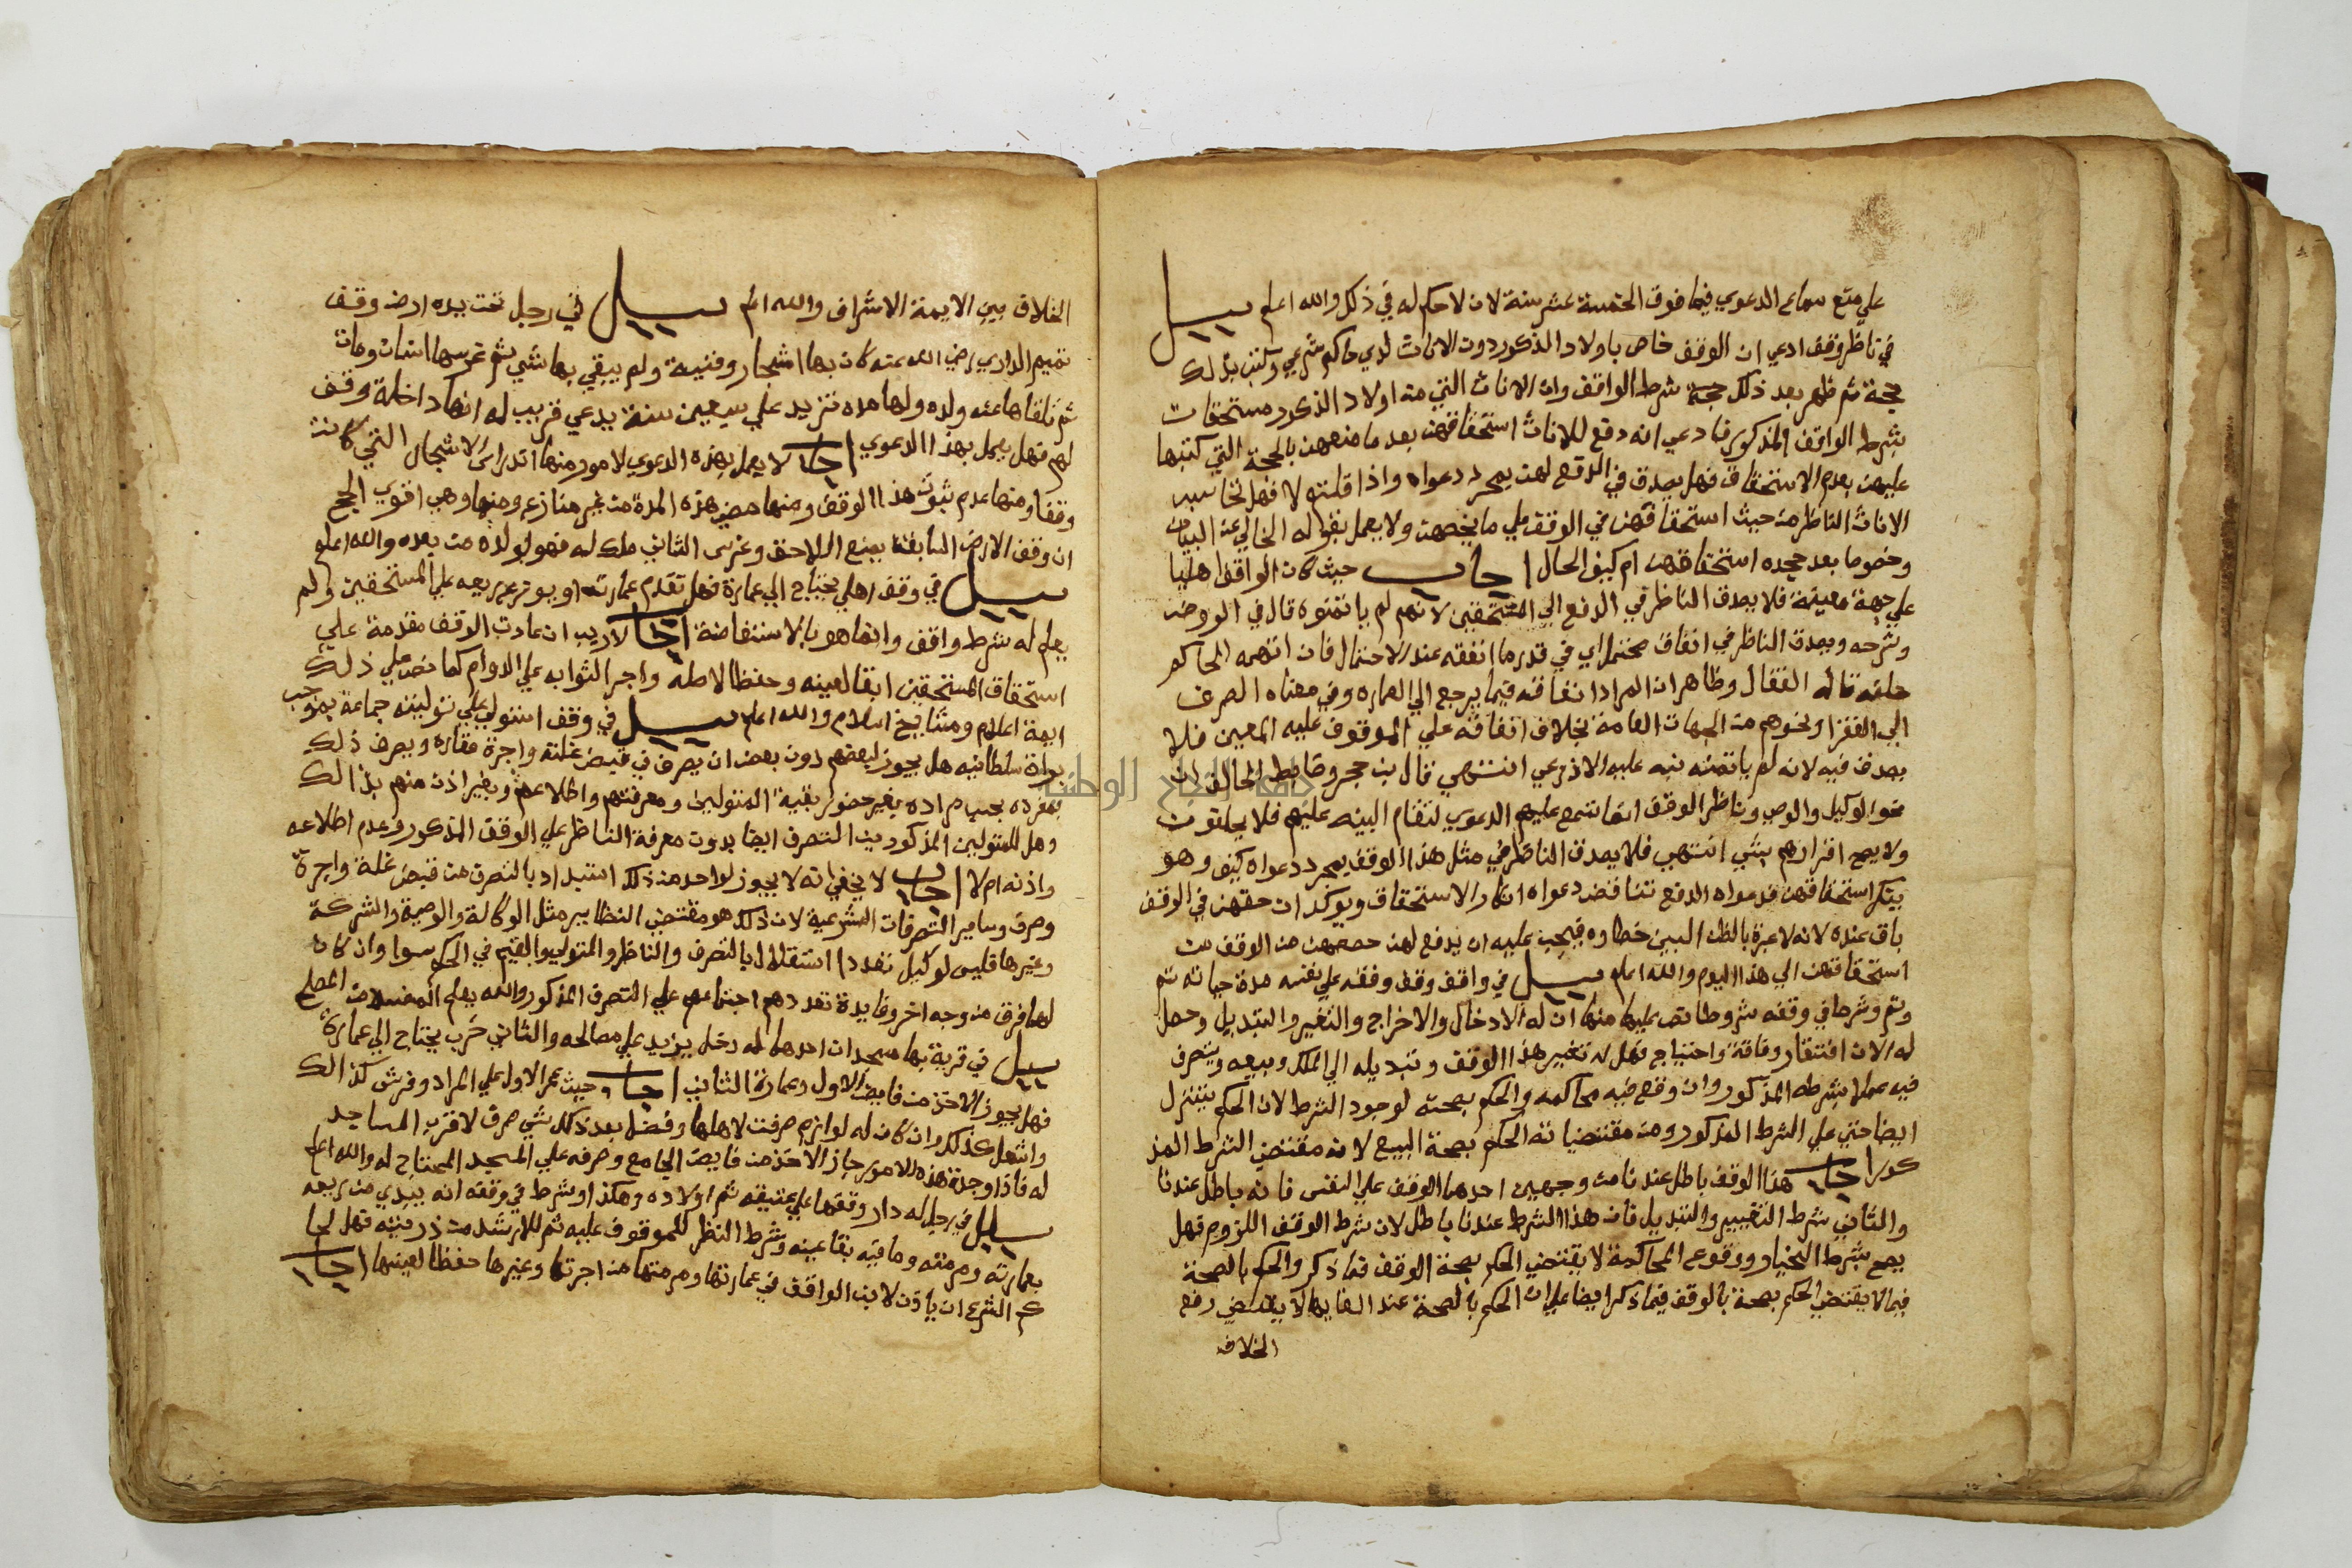 علي متع سماع الدعوي فيما فوق الخمسة عشر سنة لان لا حكم له في ذلك والله اعلم سيل
في ناظر وقف ادعي ان الوقف خاص باولاد الذكور دون الاناث لدي حاكم شرعي وكتب بذلك
حجة ثم ظهر بعد ذلك حجة شرط الواقف وان الاناث التي من اولاد الذكور مستحقات
بشرط الواقف المذكور فادعي انه دفع للاناث استحقاقهن بعد ما منعهن بالحجة التي كتبها
عليهن بعدم الاستحقاق فهل يصدق في الدفع لهن بمجرد دعواه واذا قلتم لا فهل تحاسب
الاناث الناظر من حيث استحقاقهن في الوقف علي ما يخصهن ولا يعمل بقوله الخالي عن البيان
وخصوصا بعد جحده استحقاقهن ام كيف الحال اجاب حيث كان الواقف اهليا
علي جهة معينة فلا يصدق الناظر في الدفع الي المستحقين لانهم لم ياتمنوه قال في الروض
وشرحه ويصدق الناظر في انفاق محتمل اي في قدر ما انفقه عند الاحتمال فان اتهمه الحاكم
حلفه قاله القفال وظاهر ان المراد انفاقه فيما يرجع الي العماره وفي معناه الصرف
الي الفقرا ونحوهم من الجهات العامة بخلاف انفاقه علي الموقوف عليه المعين فلا
يصدق فيه لانه لم ياتمنه نبه عليه الاذرعي انتهي قال بن حجر وضابط الحالف ان
نحو الوكيل والوصي وناظر الوقف انما تسمع عليهم الدعوي لتقام البينه عليهم فلا يحلفون
ولا يصح اقرارهم بشي انتهي فلا يصدق الناظر في مثل هذا الوقف بمجرد دعواه كيف وهو
ينكر استحقاقهن فدعواه الدفع تناقض دعواه انكار الاستحقاق ويوكد ان حقهن في الوقف
باق عنده لانه لا عبرة بالظن البين خطاوه فيجب عليه ان يدفع لهن حصصهن من الوقف من
استحقاقهن الي هذا اليوم والله اعلم سيل في واقف وقف وقفه علي نفسه مدة حياته ثم
وثم وشرط في وقفه شروطا نص عليها منها ان له الادخال والاخراج والتغير والتبديل وحصل
له الان افتقار وفاقة واحتياج فهل له تغير هذا الوقف وتبديله الي الملك وبيعه ويتصرف
فيه عملا بشرطه المذكور وان وقع فيه محاكمه والحكم بصحته لوجود الشرط لان الحكم يتنزل
ايضا حتي علي الشرط المذكور ومن مقتضياته الحكم بصحة البيع لانه مقتضي الشرط المذ
كور اجاب هذا الوقف باطل عندنا من وجهين احدهما الوقف علي النفس فانه باطل عندنا
والثاني شرط التغيير والتبديل فان هذا الشرط عندنا باطل لان شرط الوقف اللزوم فهل
يصح بشرط الخيار ووقوع المحاكمة لا يقتضي الحكم بصحة الوقف فيما ذكر والحكم بالصحة
فيما لا يقتضي الحكم بصحة بالوقف فيما ذكر ايضا علي ان الحكم بالصحة عند القايل لا يقتضي رفع
الخلاف
الخلاف بين الايمة الاشراف والله اعلم سيل في رجل تحت يده ارض وقف
تميم الداري رضي الله عنه كان بها اشجار وفنية ولم يبقي بها شي ثم غرسها انسان ومات
ثم تلقاها عنه ولده ولها مده تزيد علي سبعين سنة يدعي قريب له انها داخلة وقف
لهم فهل يعمل بهذا الدعوي اجاب لا يعمل بهذه الدعوي لامور منها اندراس الاشجار التي كانت
وقفا ومنها عدم ثبوت هذا الوقف ومنها مضي هذه المدة من غير منازع ومنها وهي اقوي الحجج
ان وقف الارض السابقة يمنع اللاحق وغرس الثاني ملك له فهو لولده من بعده والله اعلم
سيل في وقف اهلي يحتاج الي عمارة فهل تقدم عمارته او يوزع ريعه علي المستحقين ولم
يعلم له شرط واقف وانما هو بالاستفاضة اجاب لا ريب ان عمارت الوقف مقدمة علي
استحقاق المستحقين ابقا لعينه وحفظا لاصله واجر الثواب علي الدوام كما نص علي ذلك
ايمة اعلام ومشايخ اسلام والله اعلم سيل في وقف استولي علي توليته جماعة بموجب
براة سلطانيه هل يجوز لبعضهم دون بعض ان يصرف في قبض غلته واجرة عقاره ويصرف ذلك
بمفرده بحسب مراده بغير حضور بقية المتولين ومعرفتهم واطلاعهم وبغير اذن منهم بذالك
وهل للمتولين المذكورين التصرف ايضا بدون معرفة الناظر علي الوقف المذكور وعدم اطلاعه
واذنه ام لا اجاب لا يخفي انه لا يجوز لواحد من ذلك استبداد بالتصرف من قبض غلة واجرة
وصرف وساير التصرفات الشرعية لان ذلك هو مقتضي النظاير مثل الوكالة والوصية والشركة
وغيرها فليس لوكيل تعدد استقلال بالتصرف والناظر والمتولي والقيم في الحكم سوا وان كان
لهما فرق من وجه اخر وفايدة تعددهم اجتماعهم علي التصرف المذكور والله يعلم المفسد من المصلح
سيل في قرية بها مسجدان احدهما له دخل يزيد علي مصالحه والثاني خرب يحتاج الي عمارة
فهل يجوز الاخذ من فايض الاول وعمارة الثاني اجاب حيث عمر الاول علي المراد وفرش كذالك
واشعل كذلك وان كان له لوازم صرفت لاهلها وفضل بعد ذلك شي صرف لاقرب المساجد
له فاذا وجدة هذه الامور جاز الاخذ من فايض الجامع وصرفه علي المسجد المحتاج له والله اعلم
سيل في رجل له دار وقفها علي عتيقه ثم اولاده وهكذا وشرط في وقفه انه يبدي من ريعه
بعمارته ومرمته وما فيه بقا عينه وشرط النظر للموقوف عليه ثم للارشد من ذريته فهل لحا
كم الشرع ان ياذن لابن الواقف في عمارتها ومرمتها من اجرتها وغيرها حفظا لعينها اجاب